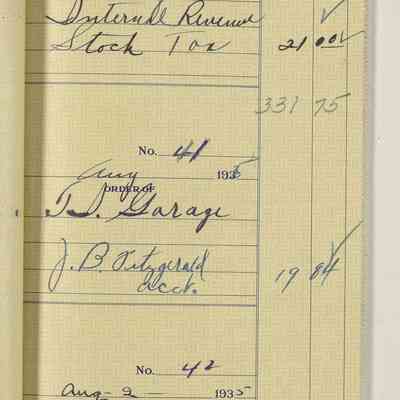 Internal Revenue
Stock Tax 21 00
331 75
No. 41
Aug 1935
ORDER OF
Garage
J. B. Fitzgerald
acct. 19 84
No. 42
Aug - 2 - 1935